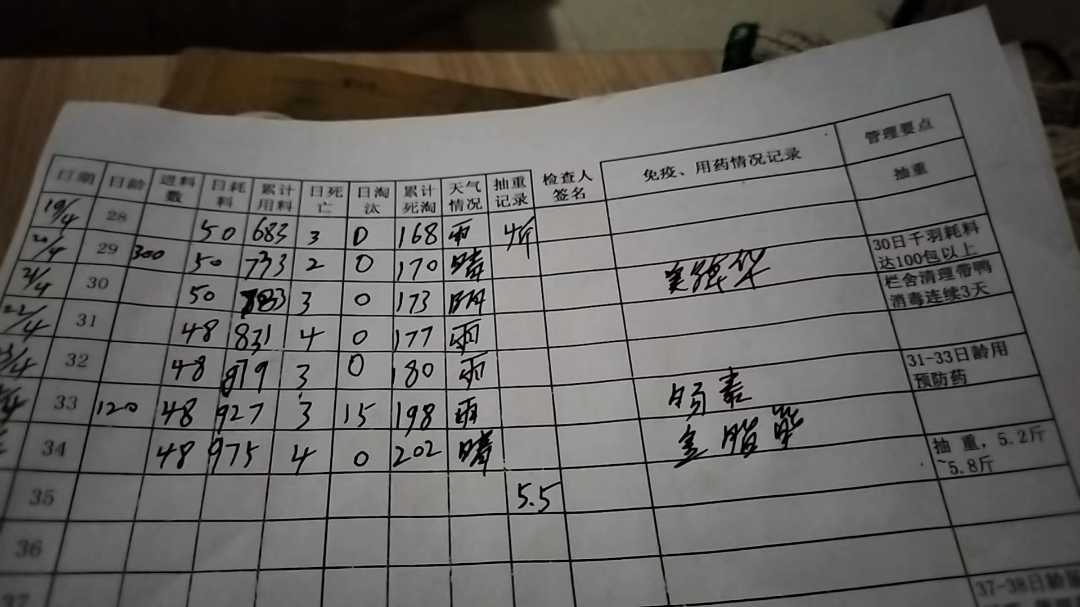 日期 日龄 进料数 日耗料 累计用料 日死亡 日淘汰 累计死淘 天气情况 抽重记录 检查人签名 免疫、用药情况记录 管理要点
抽重
19/4 28 50 683 3 0 168 雨 4斤
29 300 50 733 2 0 170 晴 30日千羽耗料达100包以上
21/4 30 50 783 3 0 173 阴 栏舍清理带鸭消毒连续3天
22/4 31 48 831 4 0 177 雨
32 48 879 3 0 180 雨 31-33日龄用预防药
33 120 48 927 3 15 198 雨 肠毒
34 48 975 4 0 202 晴 抽重,5.2斤~5.8斤
35 5.5
36
37 37-38日龄